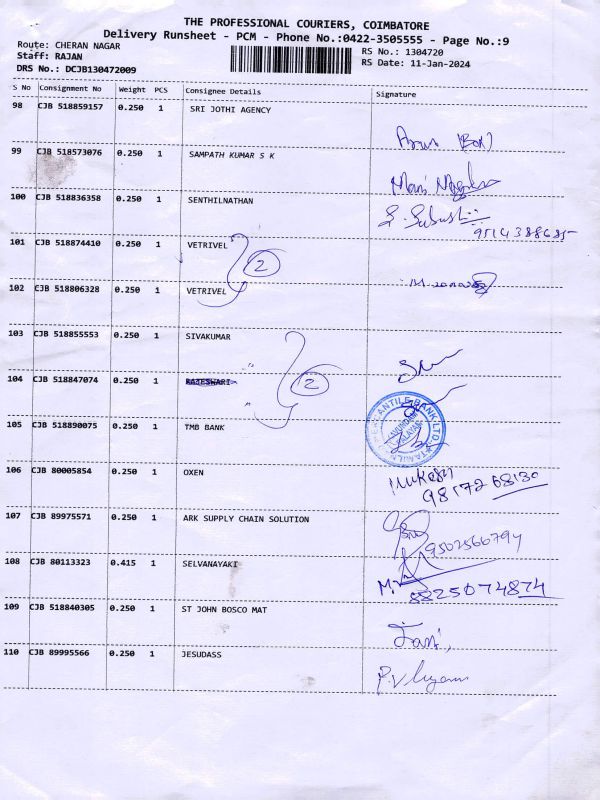 THE PROFESSIONAL COURIERS, COIMBATORE
Delivery Runsheet - PCM - Phone No.:0422-3505555 - Page No.:9
Route: CHERAN NAGAR
RS No.: 1304720
Staff: RAJAN
RS Date: 11-Jan-2024
DRS No.: DCJB130472009
S No Consignment No Weight PCS Consignee Details Signature
98 CJB 518859157 0.250 1 SRI JOTHI AGENCY
99 CJB 518573076 0.250 1 SAMPATH KUMAR S K
100 CJB 518836358 0.250 1 SENTHILNATHAN
101 CJB 518874410 0.250 1 VETRIVEL
2
102 CJB 518806328 0.250 1 VETRIVEL
103 CJB 518855553 0.250 1 SIVAKUMAR
104 CJB 518847074 0.250 1 RAJESWARI
2
105 CJB 518890075 0.250 1 TMB BANK
106 CJB 80005854 0.250 1 OXEN
Mukesh
98172 68130
107 CJB 89975571 0.250 1 ARK SUPPLY CHAIN SOLUTION
9502566794
108 CJB 80113323 0.415 1 SELVANAYAKI
8825074874
109 CJB 518840305 0.250 1 ST JOHN BOSCO MAT
110 CJB 89995566 0.250 1 JESUDASS